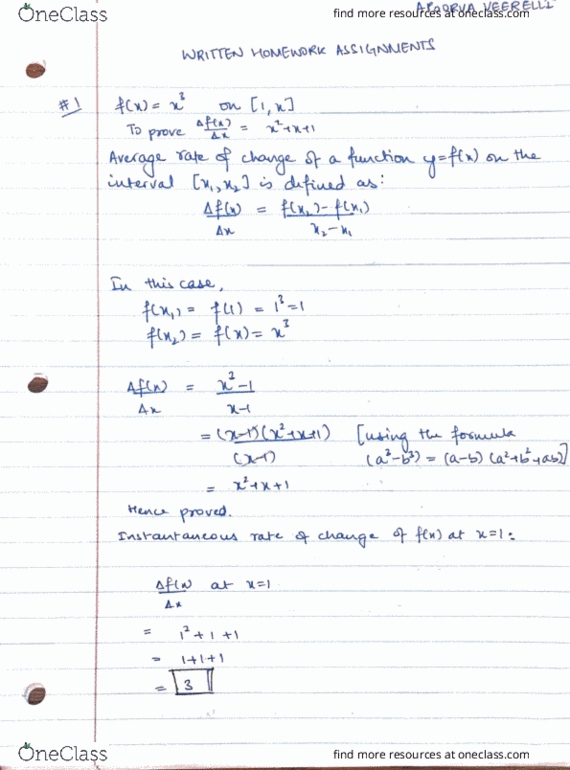 OneClass
find more resources at oneclass.com
APOORVA VEERELLI
WRITTEN HOMEWORK ASSIGNMENTS
#1 f(x) = x³ on [1, x]
To prove Δf(x)/Δx = x²+x+1
Average rate of change of a function y=f(x) on the
interval [x₁, x₂] is defined as:
Δf(x)/Δx = f(x₂)-f(x₁)/x₂-x₁
In this case,
f(x₁) = f(1) = 1³=1
f(x₂) = f(x) = x³
Δf(x)/Δx = x²-1/x-1
= (x-1)(x²+x+1)/(x-1) [using the formula
(a³-b³) = (a-b)(a²+b²+ab)]
= x²+x+1
Hence proved.
Instantaneous rate of change of f(x) at x=1:
Δf(x)/Δx at x=1
= 1²+1+1
= 1+1+1
= 3
OneClass
find more resources at oneclass.com